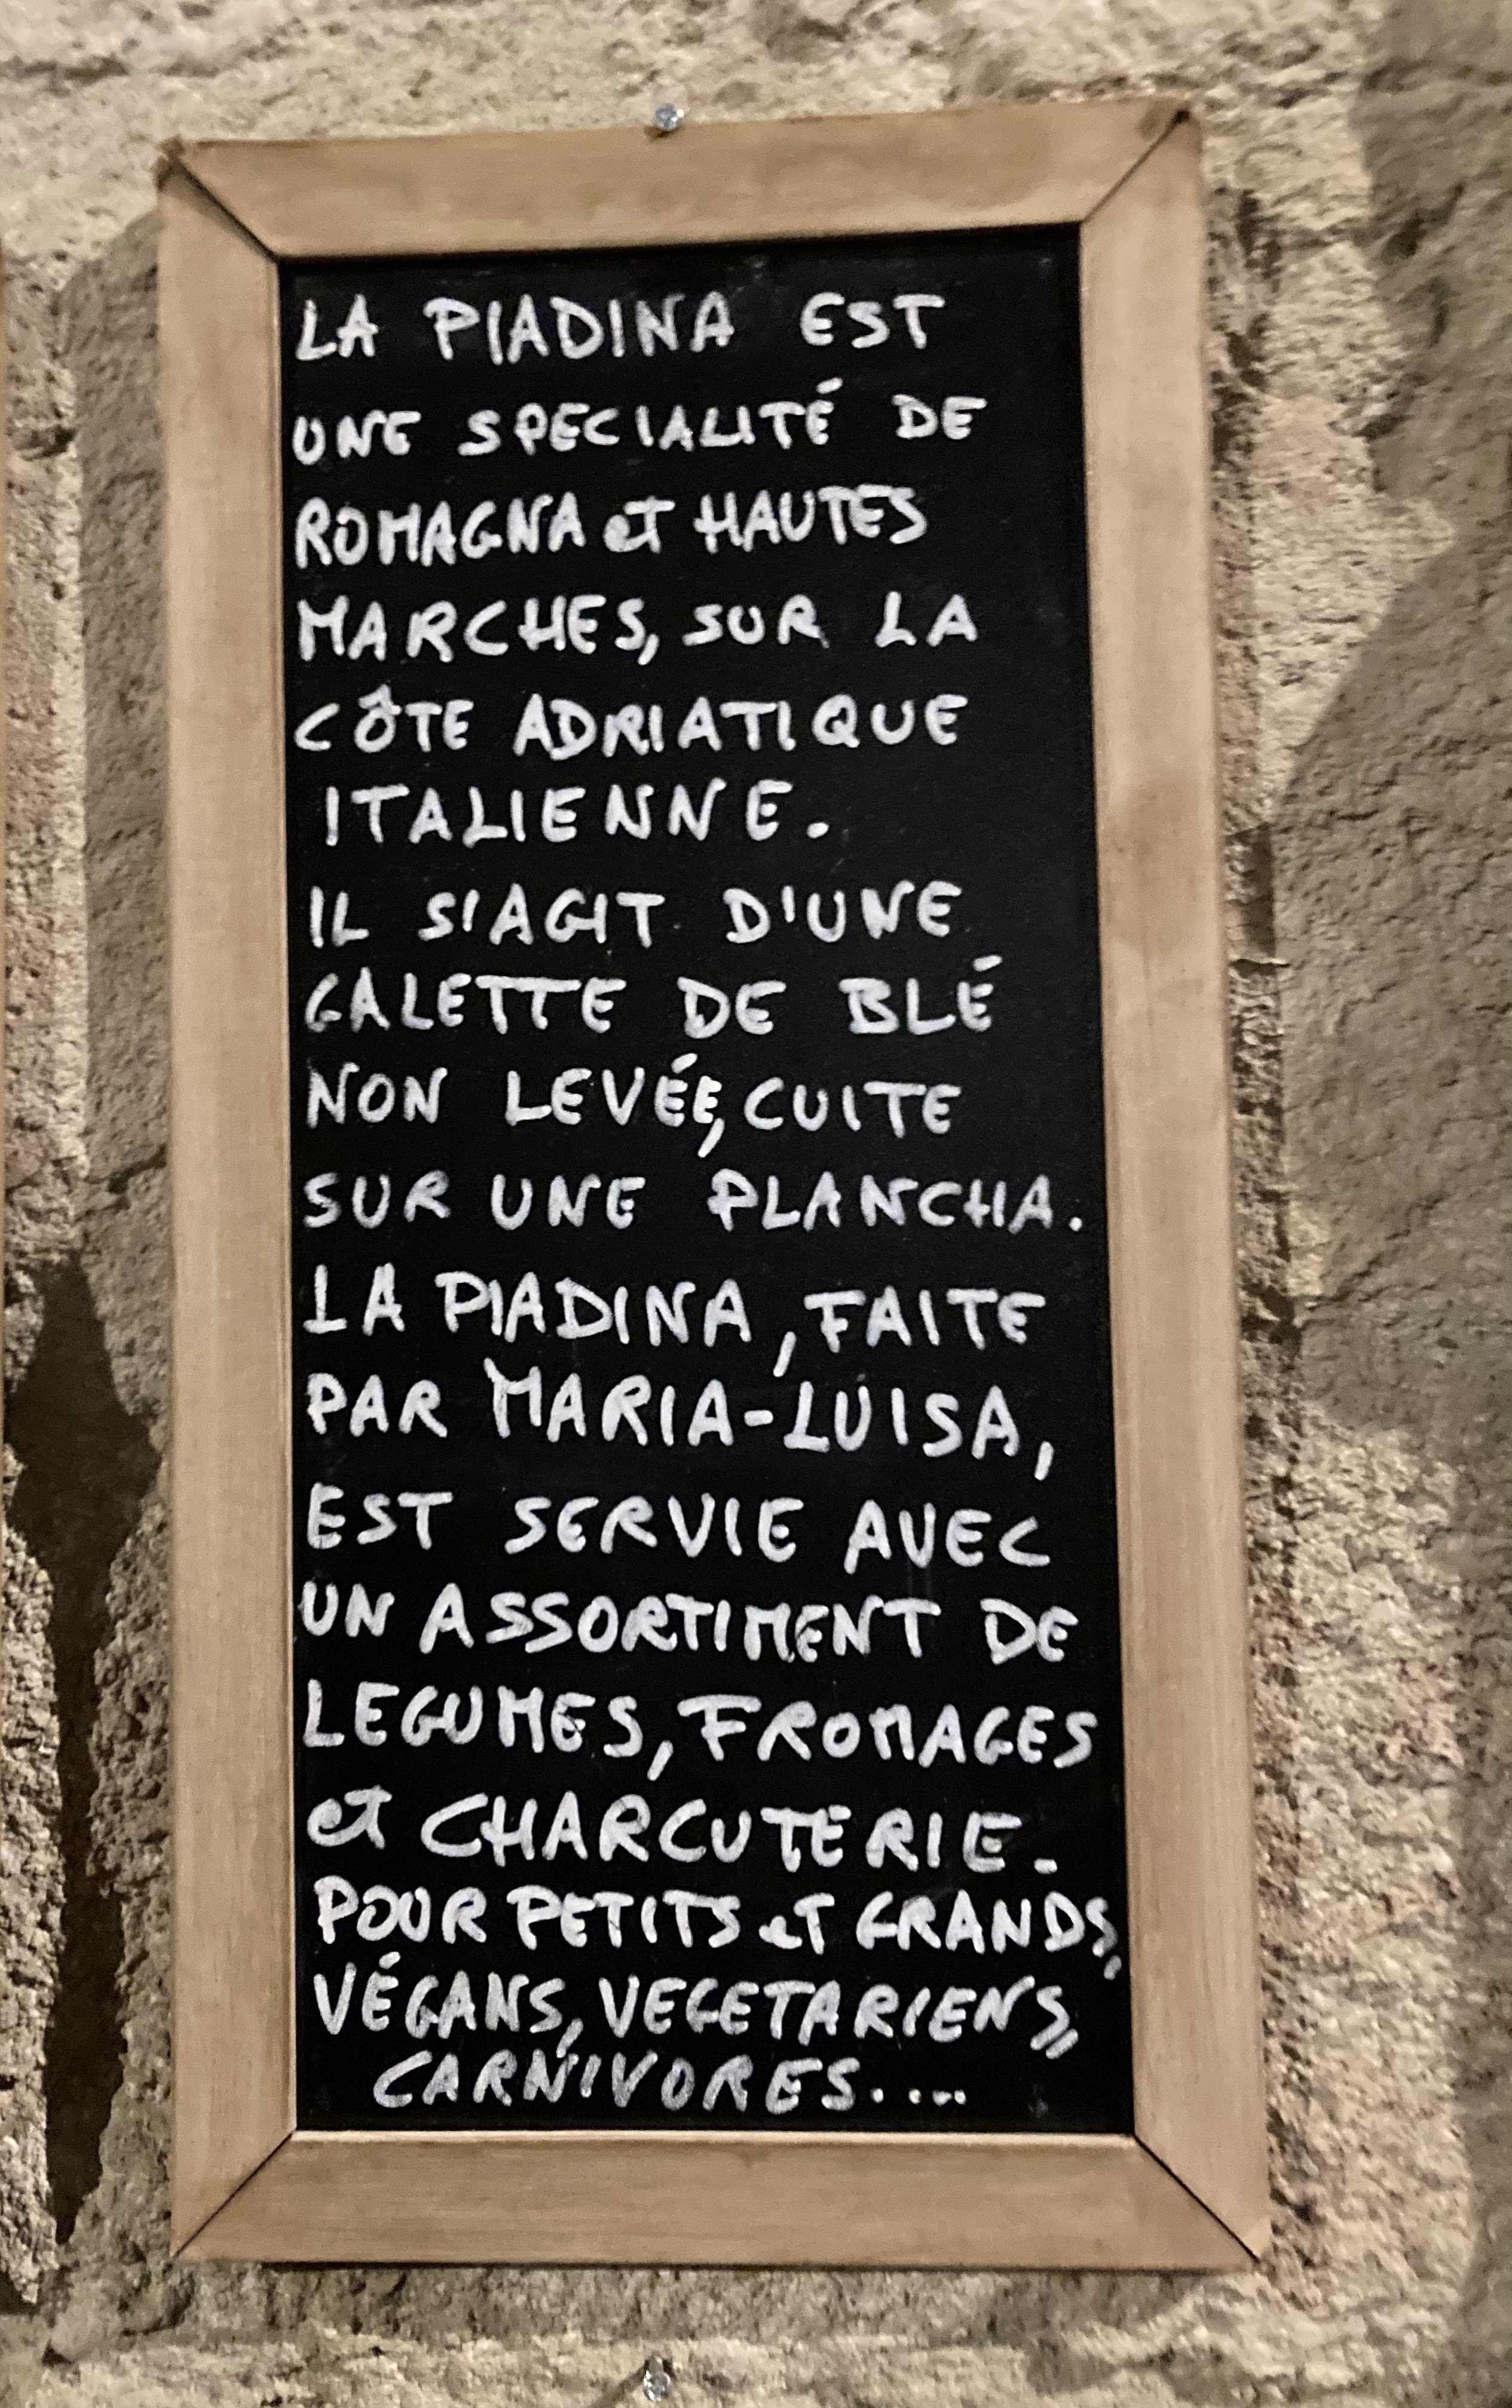 LA PIADINA EST
UNE SPECIALITÉ DE
ROMAGNA et HAUTES
MARCHES, SUR LA
CÔTE ADRIATIQUE
ITALIENNE.
IL S'AGIT D'UNE
GALETTE DE BLÉ
NON LEVÉE, CUITE
SUR UNE PLANCHA.
LA PIADINA, FAITE
PAR MARIA-LUISA,
EST SERVIE AVEC
UN ASSORTIMENT DE
LEGUMES, FROMAGES
et CHARCUTERIE.
POUR PETITS et GRANDS,
VÉGANS, VEGETARIENS,
CARNIVORES....